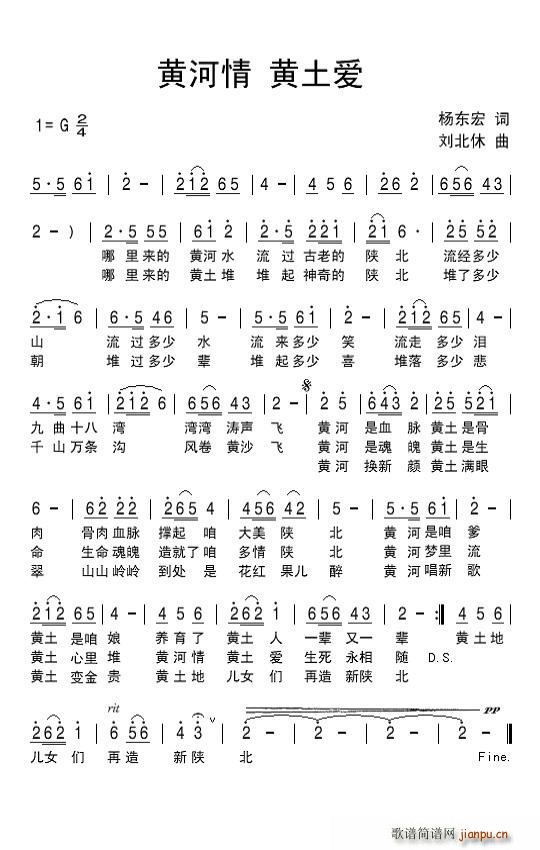 黄河情 黄土爱
1= G 2/4
杨东宏 词
刘北休 曲
5·5 61 | 2 - | 212 65 | 4 - | 4 5 6 | 26 2 | 656 43 |
2 - ) | 2·5 55 | 61 2 | 2·5 221 | 21 6· | 25 52 |
哪里来的 黄河水 流过古老的 陕北 流经多少
哪里来的 黄土堆 堆起神奇的 陕北 堆了多少
2·1 6 | 6·5 46 | 5 - | 6·5 45 | 2 - | 25 65 | 1 - |
山 流过多少 水 流来多少 笑 流走多少 泪
朝 堆过多少 辈 堆起多少 喜 堆落多少 悲
4·5 61 | 212 6 | 656 43 | 2 - | 2 5 | 643 2 | 2·5 521 |
九曲十八 湾 湾湾涛声 飞 黄河 是血脉 黄土是骨
千山万条 沟 风卷黄沙 飞 黄河 是魂魄 黄土是生
黄河 换新颜 黄土满眼
6 - | 62 22 | 265 4 | 456 2 | 5 - | 5·5 61 | 2 - |
肉 骨肉血脉 撑起咱 大美陕 北 黄河是咱爹
命 生命魂魄 造就了咱 多情陕 北 黄河梦里流
翠 山山岭岭 到处是 花红果儿 醉 黄河唱新歌
212 65 | 4 - | 4 5 6 | 262 6 | 656 4 | 2 - :| 4 5 6 |
黄土是咱 娘 养育了 黄土人 一辈又一 辈 黄土地
黄土心里 堆 黄河情 黄土爱 生死永相 随 D.S.
黄土变金 贵 黄土地 儿女们 再造新陕 北
rit
pp
262 1 | 5 56 | 4 3 ∨ | 2 - | 2 - | 2 - | 2 - ‖
儿女们 再造 新陕 北 Fine.
歌谱简谱网
jianpu.cn